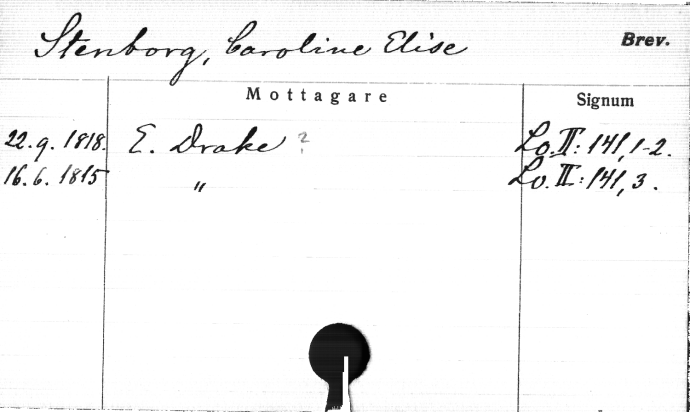 Stenborg, Caroline Elise Brev.
Mottagare Signum
22.9.1818. E. Drake ? Lo. II: 141, 1-2.
16.6.1815 " Lo. II: 141, 3.